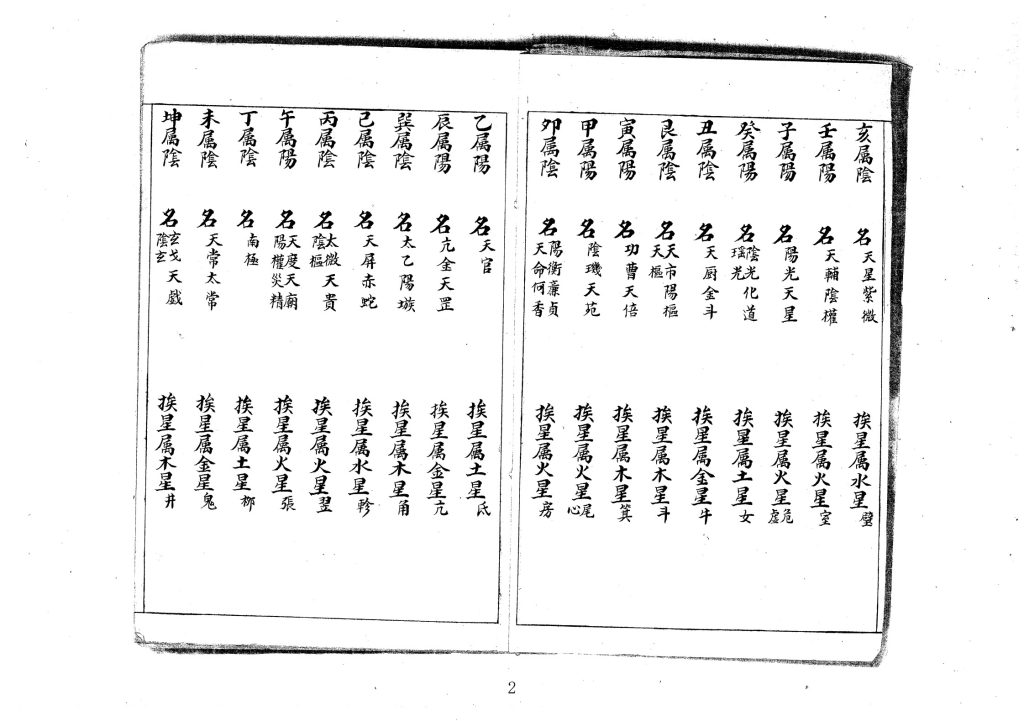 亥属陰 名天星紫微 挨星属水星壁
壬属陽 名天輔陰權 挨星属火星室
子属陽 名陽光天星 挨星属火星危虚
癸属陽 名陰光化道瑶光 挨星属土星女
丑属陰 名天厨金斗 挨星属金星牛
艮属陰 名天市陽樞天樞 挨星属木星斗
寅属陽 名功曹天倍 挨星属木星箕
甲属陽 名陰璣天苑 挨星属火星尾心
卯属陰 名陽衡廉貞天命何香 挨星属火星房
乙属陽 名天官 挨星属土星氐
辰属陽 名亢金天罡 挨星属金星亢
巽属陰 名太乙陽璇 挨星属木星角
己属陰 名天屏赤蛇 挨星属水星軫
丙属陰 名太微天貴陰樞 挨星属火星翌
午属陽 名天度天廟陽權炎精 挨星属火星張
丁属陰 名南極 挨星属土星柳
未属陰 名天常太常 挨星属金星鬼
坤属陰 名玄戈天戲陰玄 挨星属木星井
2